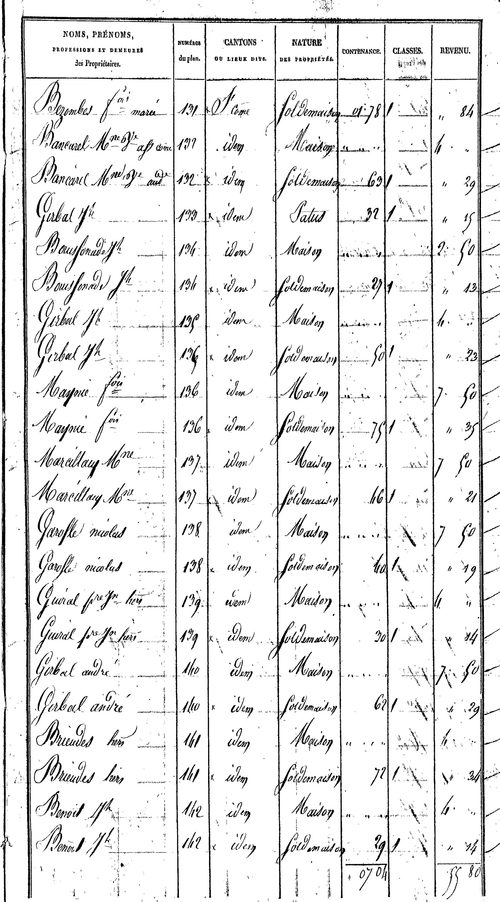 NOMS, PRÉNOMS, PROFESSIONS ET DEMEURES des Propriétaires. NUMÉROS du plan. CANTONS OU LIEUX DITS. NATURE DES PROPRIÉTÉS. CONTENANCE. CLASSES. REVENU.
Bezombes fois marié 131 St Come Soldemaison 01 78 1 " 84
Bancarel Mne 132 idem Maison " " " 4 "
Bancarel Mne 132 idem Soldemaison 63 1 " 29
Girbal Jh 133 idem Patus 32 1 " 15
Boussonade Jh 134 idem Maison " " " 2 50
Boussonade Jh 134 idem Soldemaison 27 1 " 13
Girbal Jh 135 idem Maison " " " 4 "
Girbal Jh 135 idem Soldemaison 50 1 " 23
Maynié fois 136 idem Maison " " " 7 50
Maynié fois 136 idem Soldemaison 75 1 " 35
Marcillay Mne 137 idem Maison " " " 7 50
Marcillay Mne 137 idem Soldemaison 46 1 " 21
Garofle nicolas 138 idem Maison " " " 7 50
Garofle nicolas 138 idem Soldemaison 40 1 " 19
Guiral pre Jn hers 139 idem Maison " " " 4 "
Guiral pre Jn hers 139 idem Soldemaison 30 1 " 14
Girbal andré 140 idem Maison " " " 7 50
Girbal andré 140 idem Soldemaison 62 1 " 29
Brieudes hers 141 idem Maison " " " 4 "
Brieudes hers 141 idem Soldemaison 72 1 " 34
Benoit Jh 142 idem Maison " " " 4 "
Benoit Jh 142 idem Soldemaison 29 1 " 14
07 04 55 80